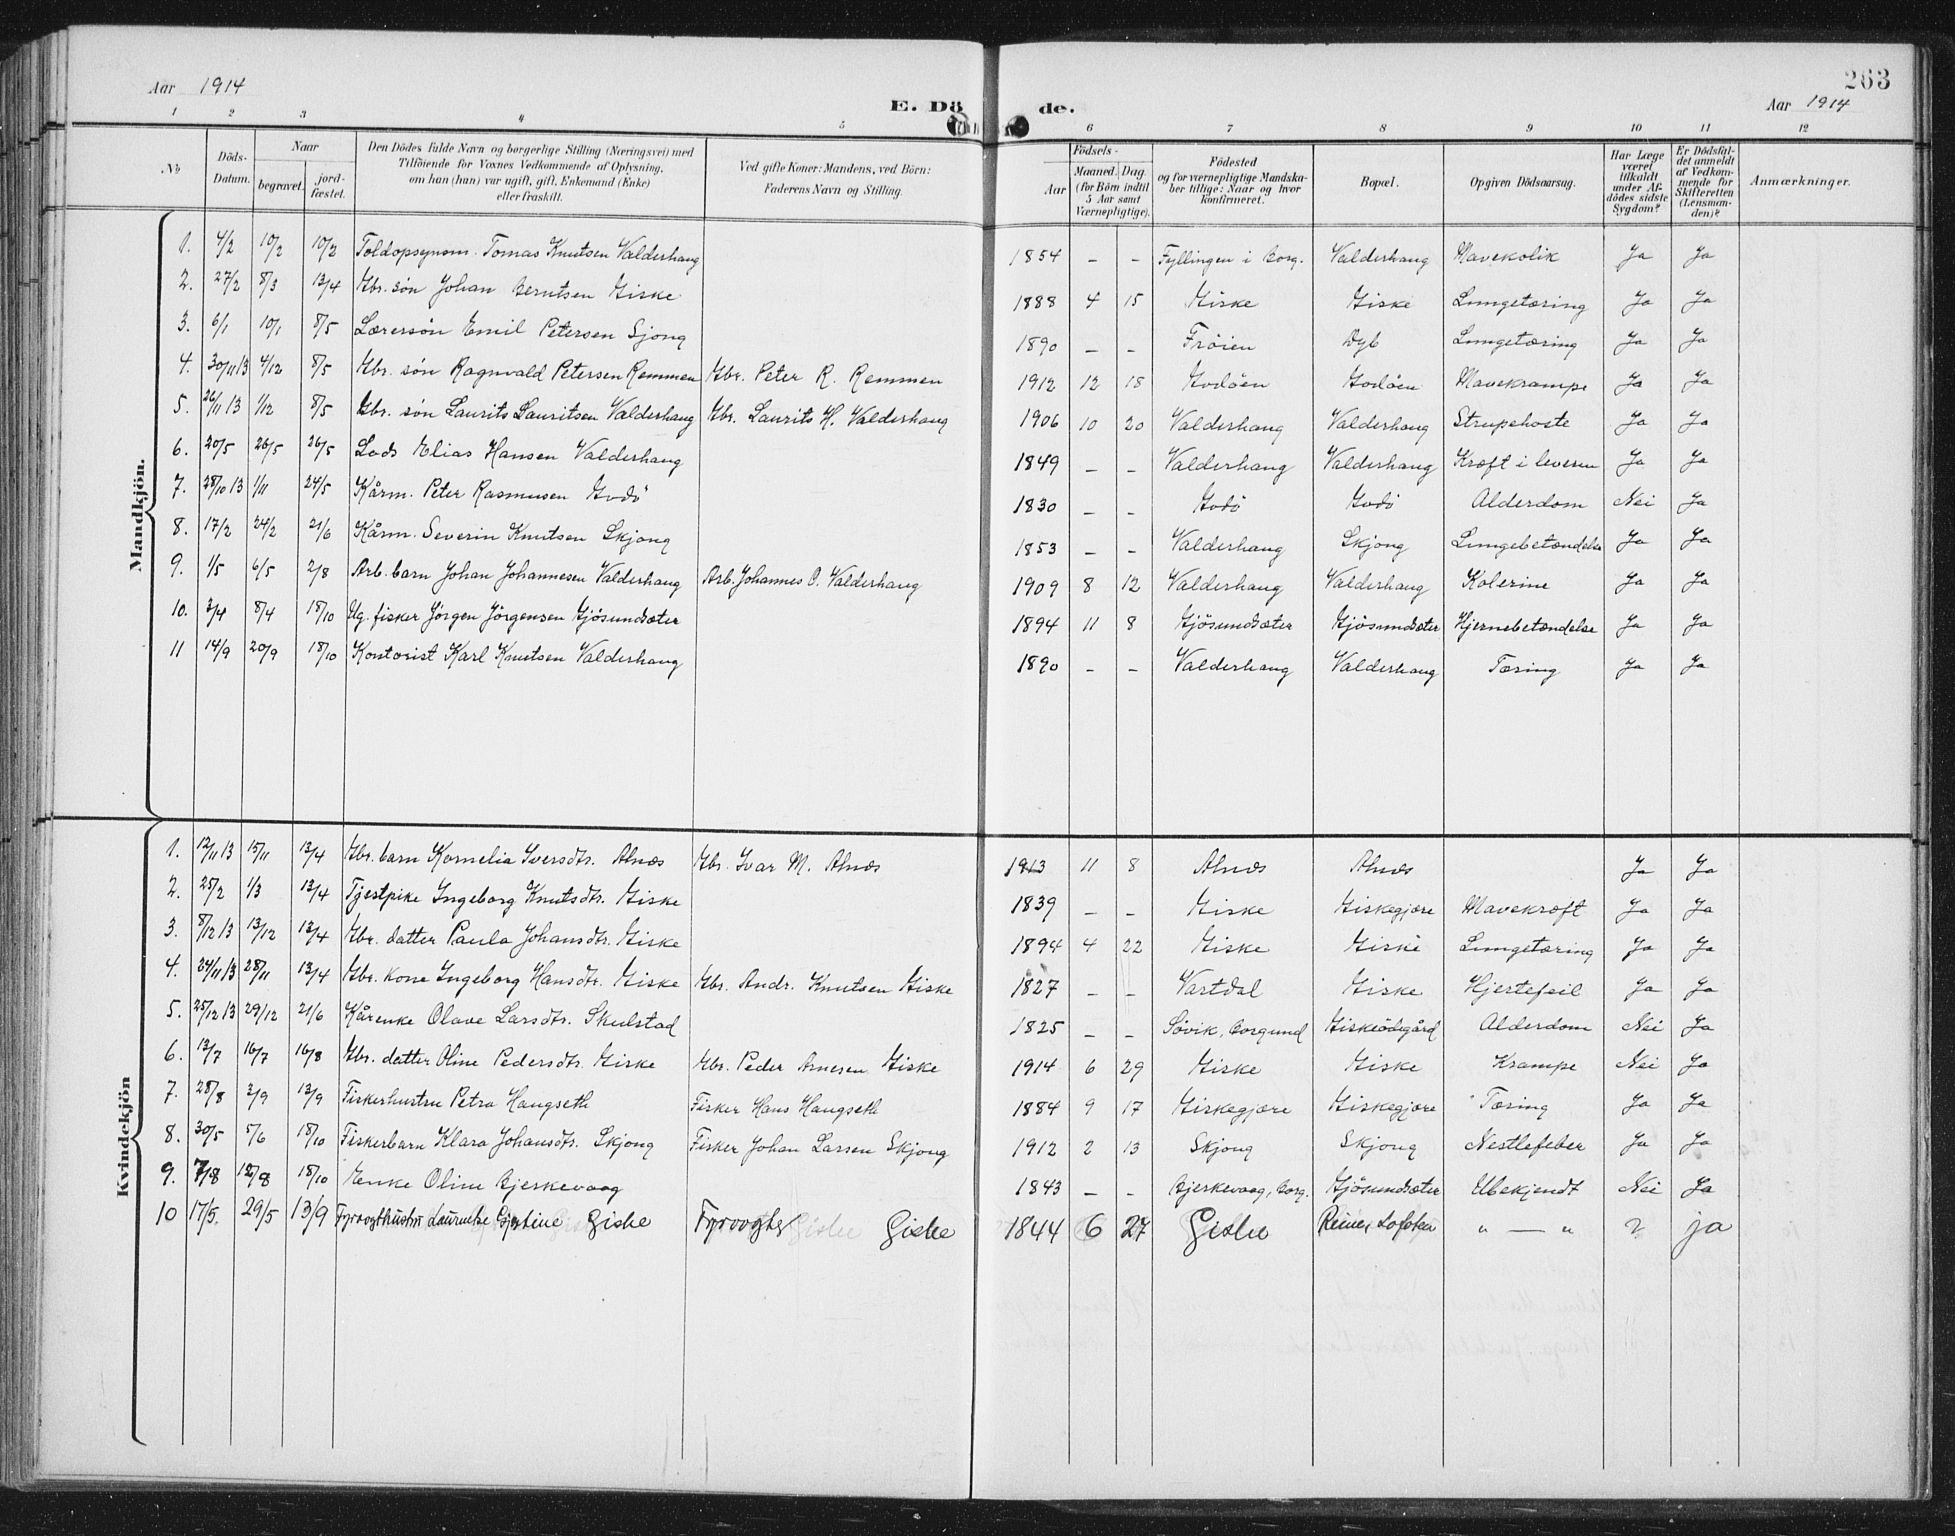 263
Aar 1914 E. Dö de. Aar 1914
1 2 3 4 5 6 7 8 9 10 11 12
No Döds-Datum. Naar begravet. jord-fæstet. Den Dödes fulde Navn og borgerlige Stilling (Næringsvei) med Tilföiende for Voxnes Vedkommende af Oplysning, om han (hun) var ugift, gift, Enkemand (Enke) eller fraskilt. Ved gifte Koner: Mandens, ved Börn: Faderens Navn og Stilling. Födsels- Aar Maaned. Dag. (for Börn indtil 5 Aar samt Værnepligtige). Födested og for værnepligtige Mandskaber tillige: Naar og hvor konfirmeret. Bopæl. Opgiven Dödsaarsag. Har Læge været tilkaldt under Afdödes sidste Sygdom? Er Dödsfaldet anmeldt af Vedkommende for Skifteretten (Lensmanden)? Anmærkninger.
Mandkjön.
1. 4/2 10/2 10/2 Toldopsynsm. Tomas Knutsen Valderhaug 1854 – – Fyllingen i Borg. Valderhaug Mavekolik Ja Ja
2. 27/2 8/3 13/4 Gbr. søn Johan Berntsen Giske 1888 4 15 Giske Giske Lungetæring Ja Ja
3. 6/1 10/1 8/5 Lærersøn Emil Petersen Sjong 1890 – – Frøien Dyb Lungetæring Ja Ja
4. 30/11 13 4/12 8/5 Gbr. søn Ragnvald Petersen Remmen Gbr. Peter R. Remmen 1912 12 18 Godøen Godøen Mavekrampe Ja Ja
5. 26/11 13 1/12 8/5 Gbr. søn Laurits Lauritsen Valderhaug Gbr. Laurits H. Valderhaug 1906 10 20 Valderhaug Valderhaug Strupehoste Ja Ja
6. 20/5 26/5 26/5 Lods Elias Hansen Valderhaug 1849 – – Valderhaug Valderhaug Kræft i leveren Ja Ja
7. 28/10 13 1/11 24/5 Kårm. Peter Rasmusen Godø 1830 – – Godø Godø Alderdom Nei Ja
8. 17/2 24/2 21/6 Kårm. Severin Knutsen Skjong 1853 – – Valderhaug Skjong Lungebetændelse Ja Ja
9. 1/5 6/5 2/8 Arb. barn Johan Johannesen Valderhaug Arb. Johannes O. Valderhaug 1909 8 12 Valderhaug Valderhaug Kolerine Ja Ja
10. 3/4 8/4 18/10 Ug. fisker Jørgen Jörgensen Gjøsundsæter 1894 11 8 Gjøsundsæter Gjøsundsæter Hjernebetændelse Ja Ja
11 14/9 20/9 18/10 Kontorist Karl Knutsen Valderhaug 1890 – – Valderhaug Valderhaug Tæring Ja Ja
Kvindekjön
1. 12/11 13 15/11 13/4 Gbr. barn Kornelia Iversdtr. Alnæs Gbr. Ivar M. Alnæs 1913 11 8 Alnæs Alnæs Ja Ja
2. 25/2 1/3 13/4 Tjestpike Ingeborg Knutsdtr. Giske 1839 – – Giske Giskegjære Mavekræft Ja Ja
3. 8/12 13 13/12 13/4 Gbr. datter Paula Johansdtr. Giske 1894 4 22 Giske Giske Lungetæring Ja Ja
4. 24/11 13 28/11 13/4 Gbr. kone Ingeborg Hansdtr. Giske Gbr. Andr. Knutsen Giske 1827 – – Vartdal Giske Hjertefeil Ja Ja
5. 25/12 13 29/12 21/6 Kårenke Olave Larsdtr. Skulstad 1825 – – Søvik, Borgund Giskeødegård Alderdom Nei Ja
6. 13/7 16/7 16/8 Gbr. datter Oline Pedersdtr. Giske Gbr. Peder Arnesen Giske 1914 6 29 Giske Giske Krampe Nei Ja
7. 28/8 3/9 13/9 Fiskerhustru Petra Haugseth Fisker Hans Haugseth 1884 9 17 Giskegjære Giskegjære Tæring Ja Ja
8. 30/5 5/6 18/10 Fiskerbarn Klara Johansdtr. Skjong Fisker Johan Larsen Skjong 1912 2 13 Skjong Skjong Nestlefeber Ja Ja
9. 7/8 12/8 18/10 Enke Oline Bjerkevaag 1843 – – Bjerkevaag, Borg. Gjøsundsæter Ubekjendt Nei Ja
10 17/5. 29/5 13/9 Fyrvogthustru Giske Fyrvogter Giske 1844 6 27 Giske Reine, Lofoten " — " ? ja